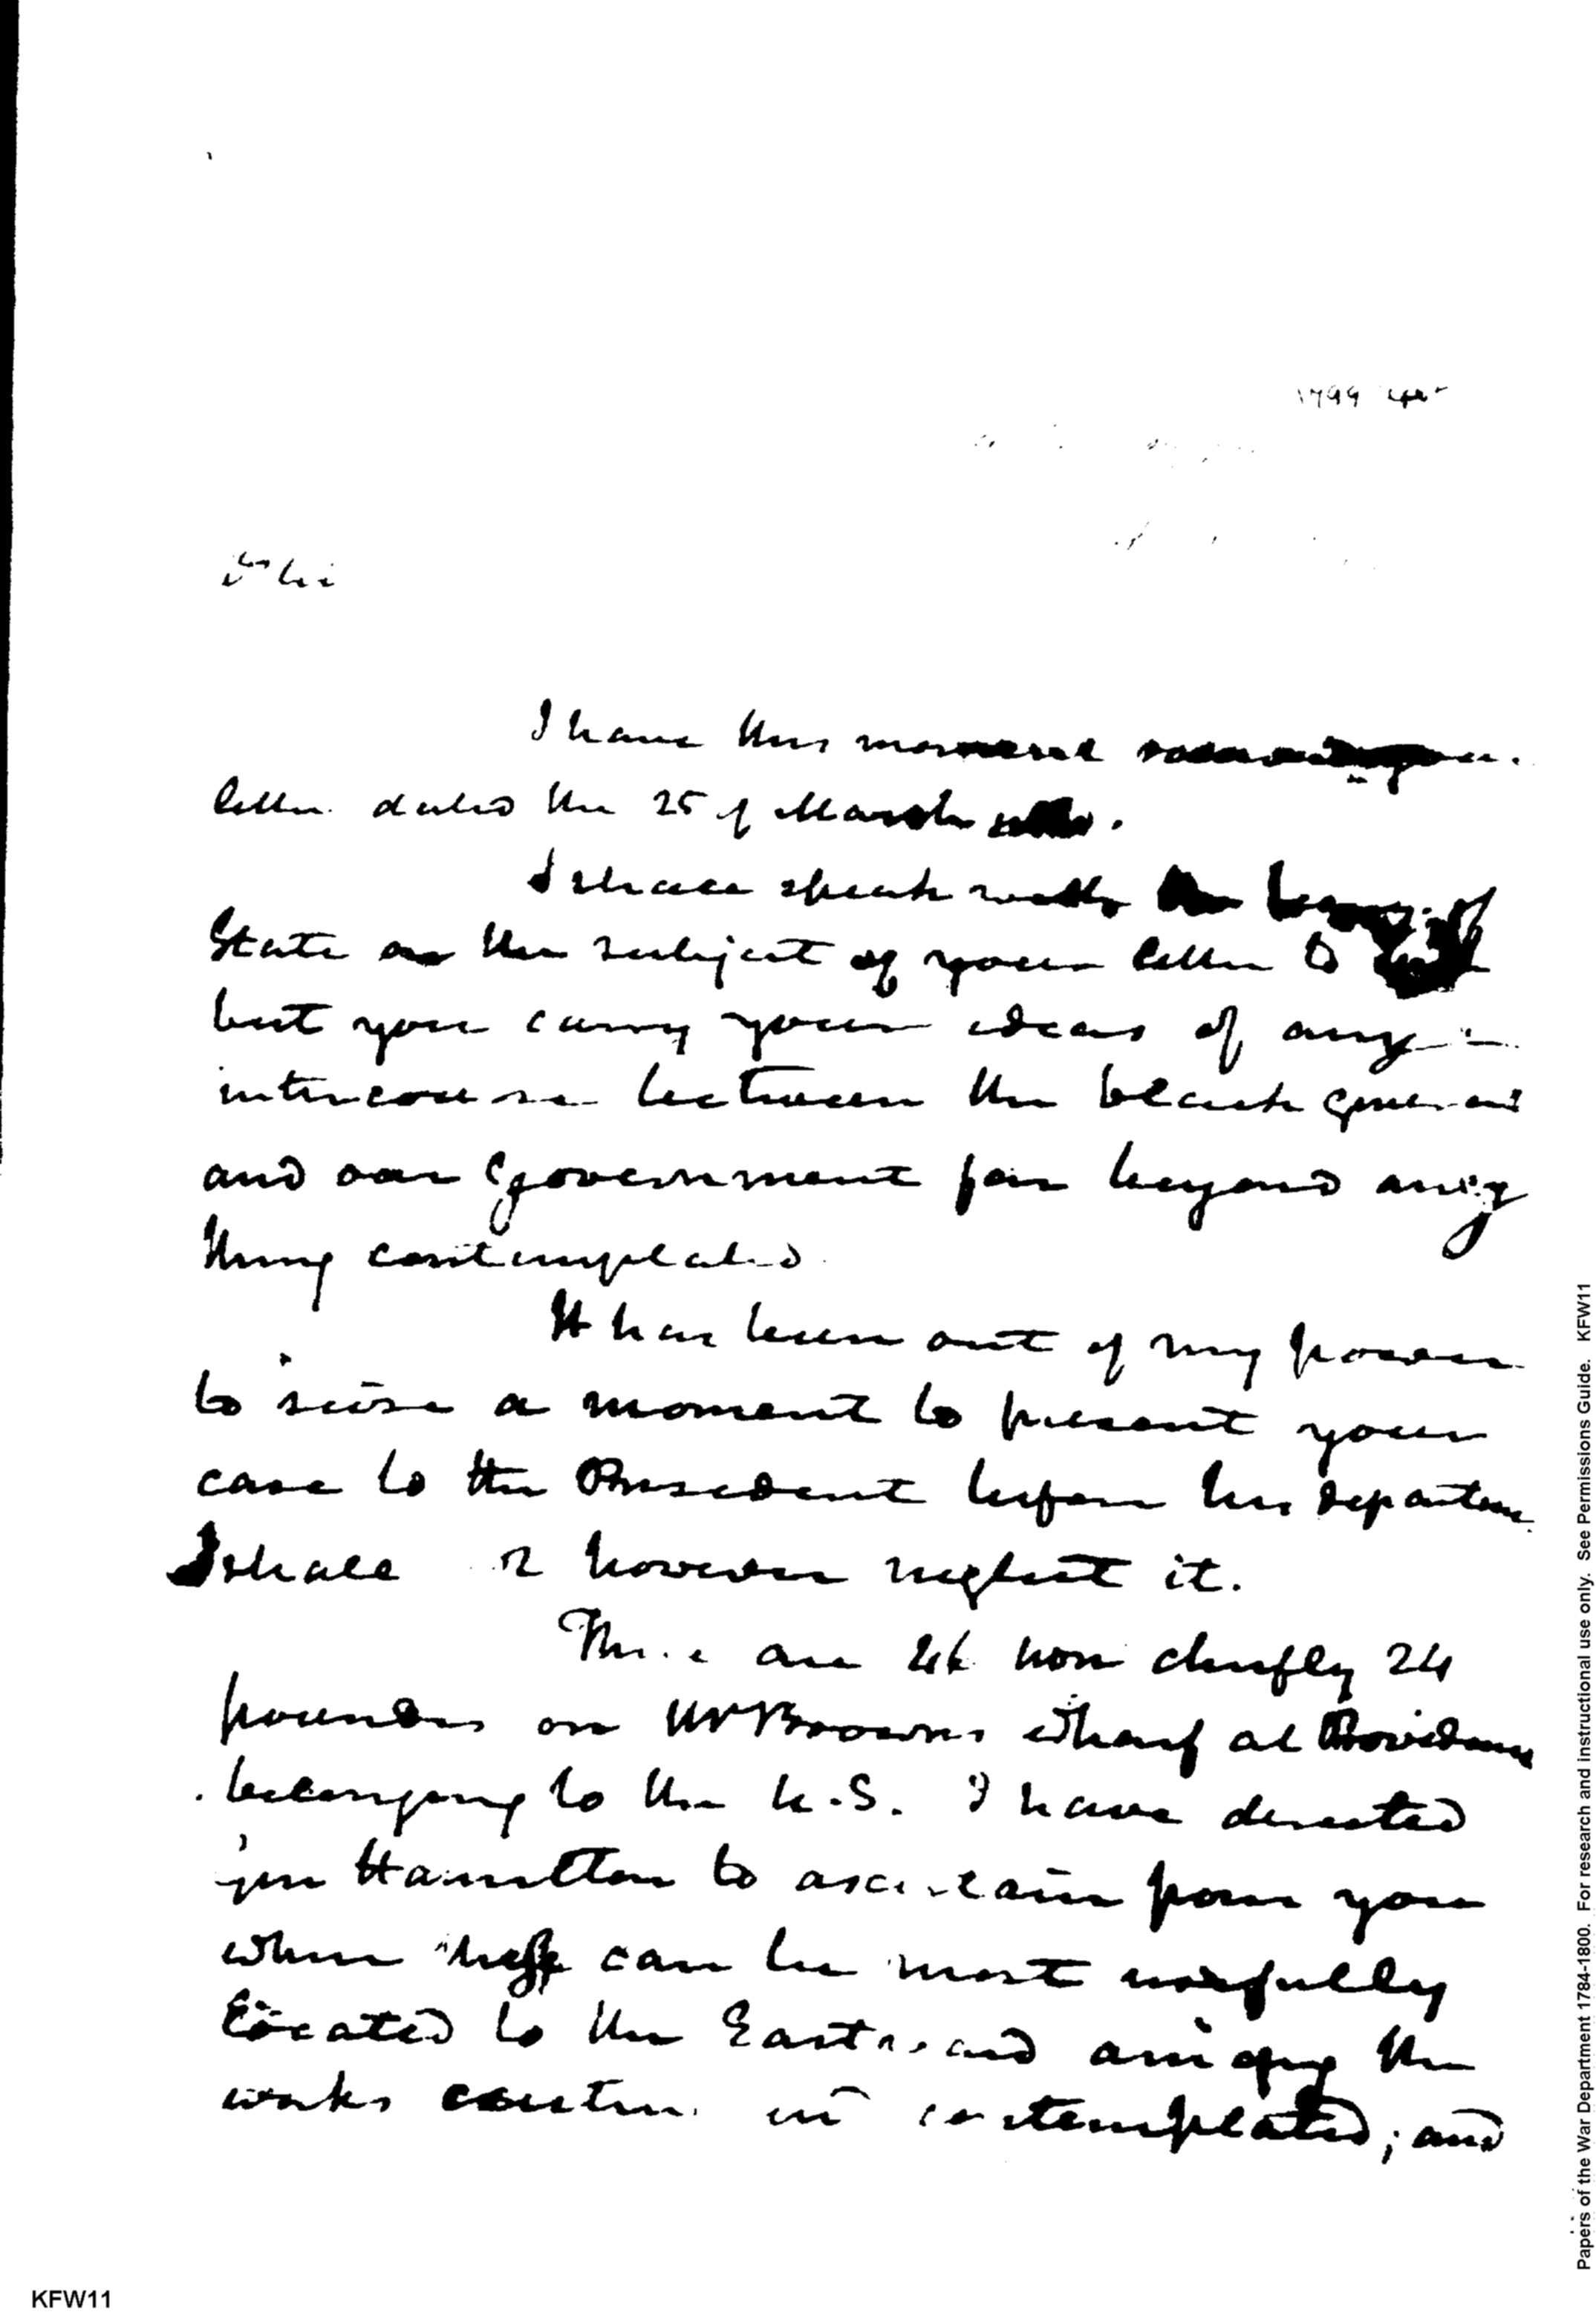 1799
I have this moment
letter dated the 25 of March
I shall speak with the of
State on the subject of your letter to
but you carry your ideas of any
intercourse between the black general
and our Government far beyond any
thing contemplated
It has been out of my power
to seize a moment to present your
case to the President before his departure
I shall however neglect it.
There are iron chiefly 24
pounders on Mr Browns wharf at Providence
belonging to the U.S. I have directed
Hamilton to ascertain from you
where they can be most usefully
located to the Eastward among the
works contemplated; and
KFW11
Papers of the War Department 1784-1800. For research and instructional use only. See Permissions Guide. KFW11